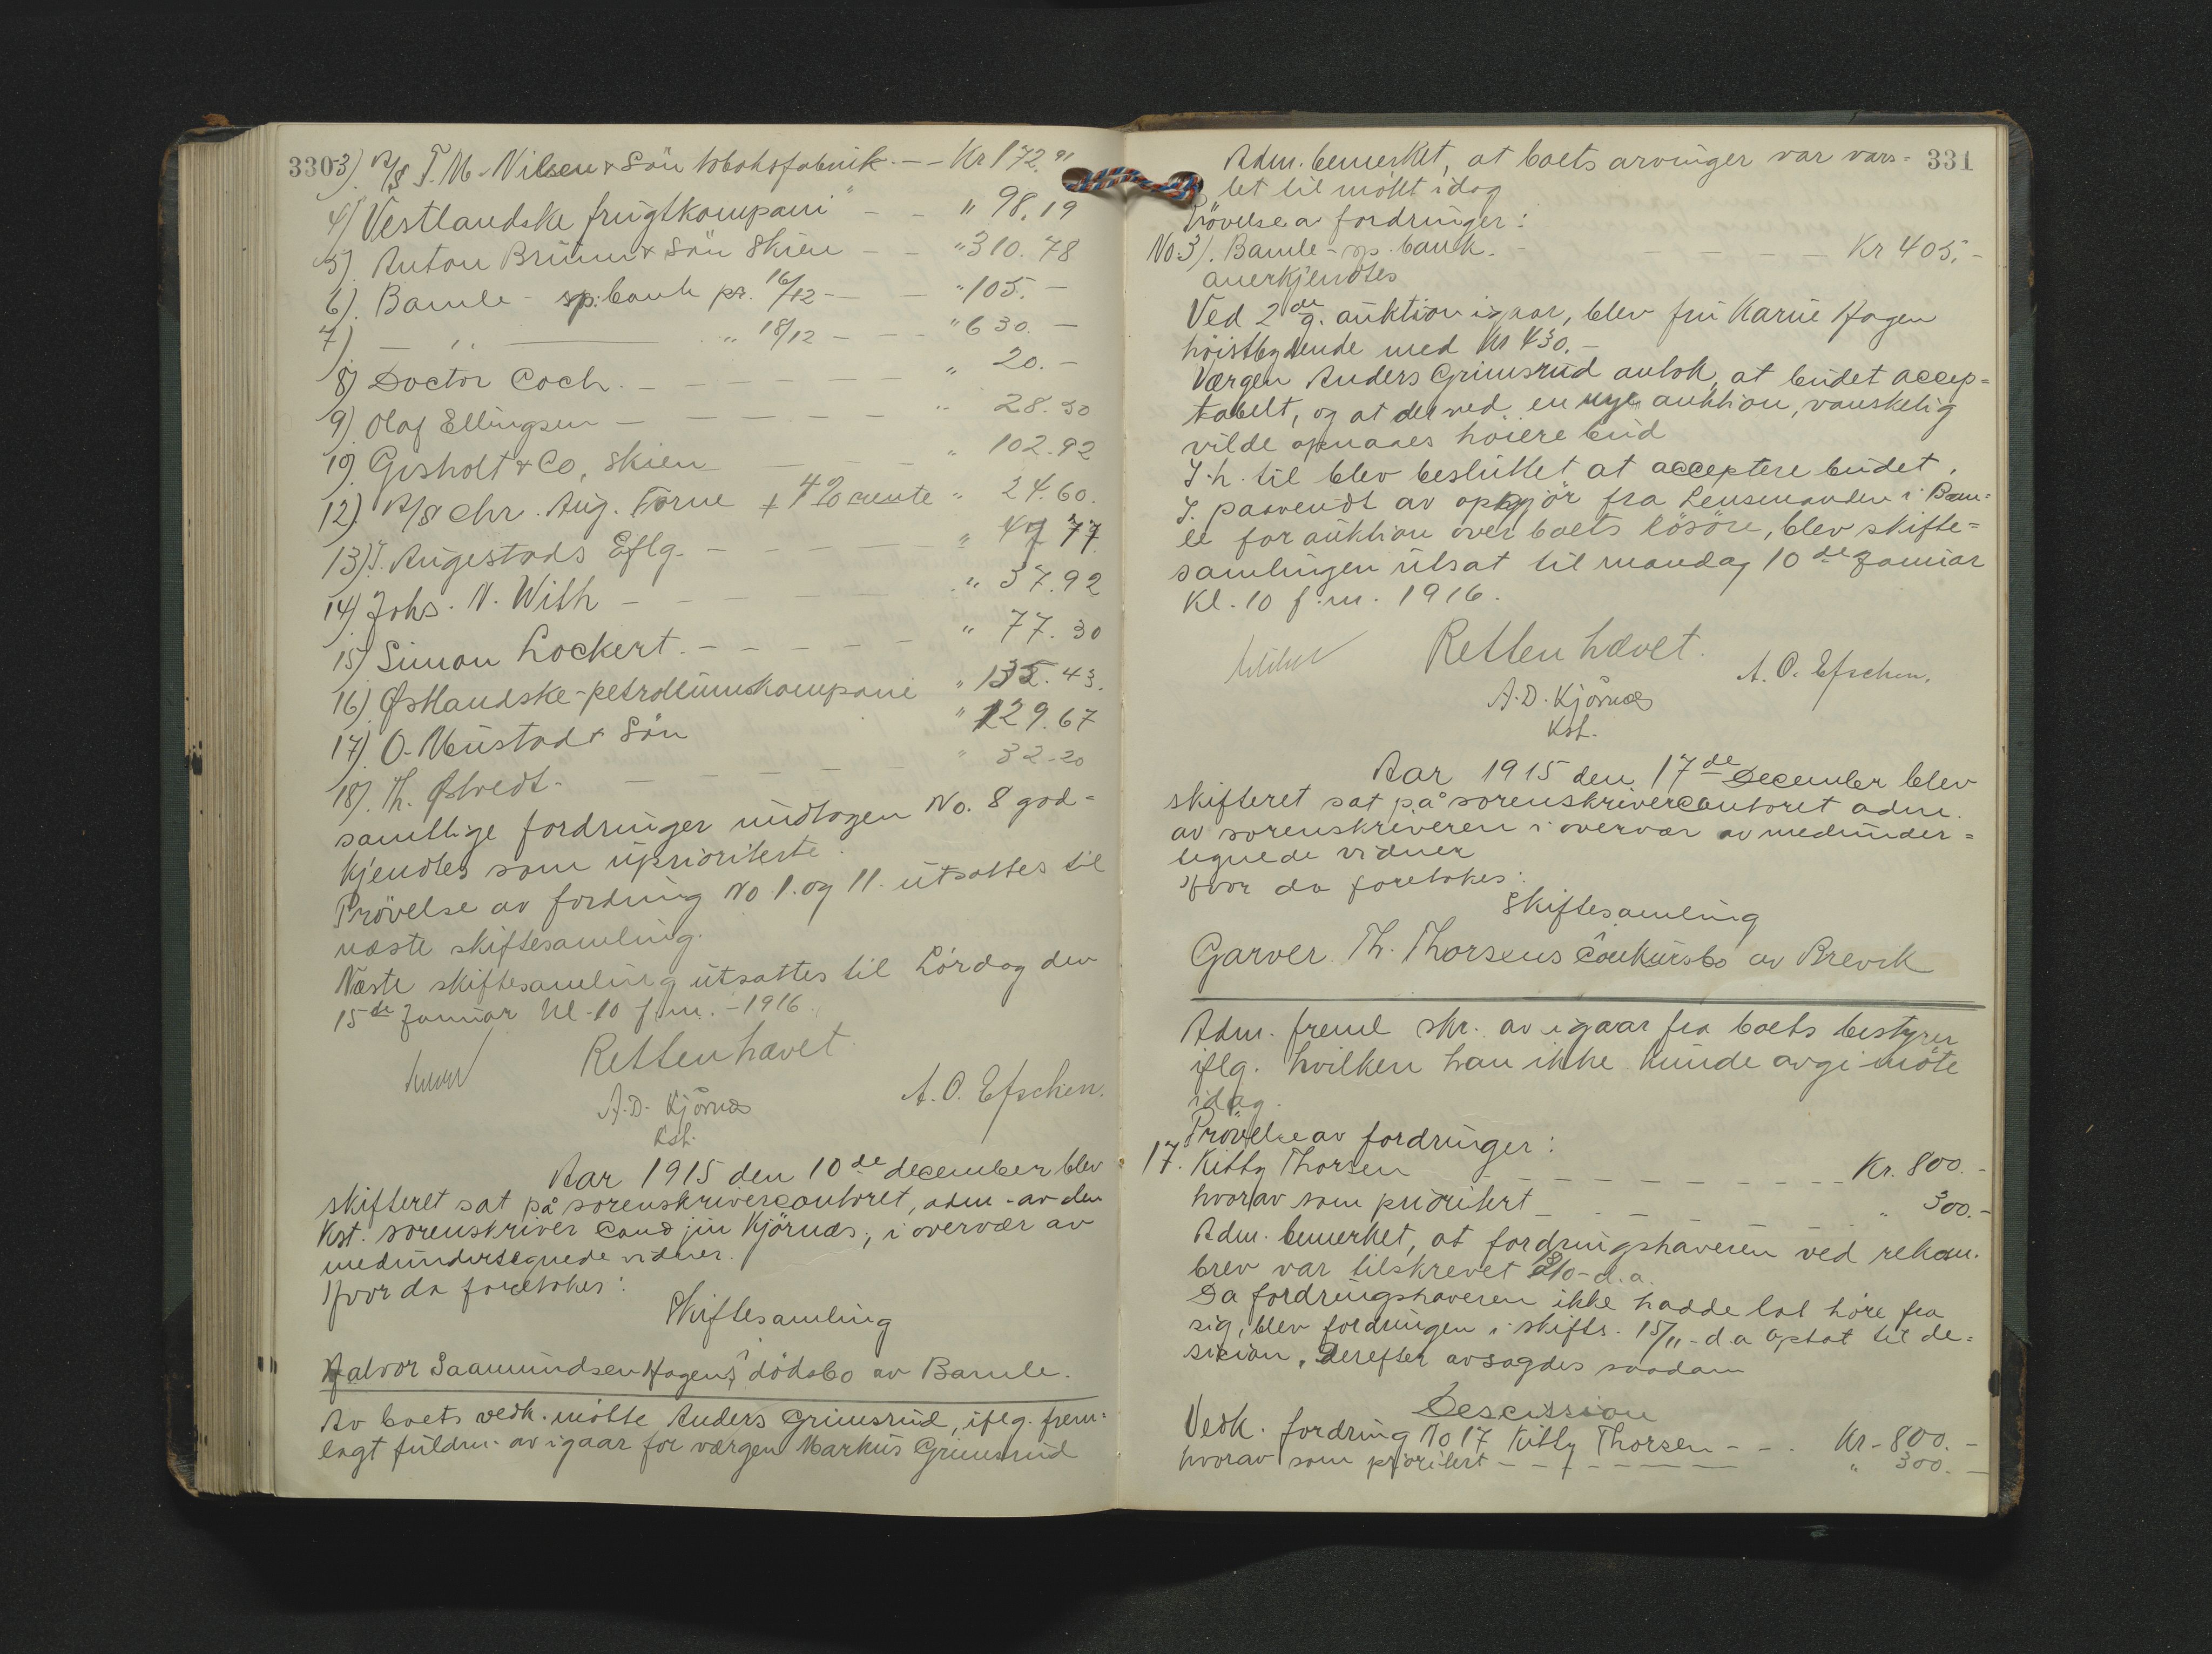 330
3). A/S T. M. Nilsen & Sön tobaksfabrik. — – Kr 172.91
4) Vestlandske frugtkompani – – " 98.19
5). Anton Brünn & Sön Skien – – " 310.78
6). Bamle - sp: bank pr. 16/12 – – " 105. –
7) – " – " 18/12 – – – " 630. –
8) Doctor Coch. – – – – – " 20. –
9). Olaf Ellingsen – – – – – " 28.30
10). Gisholt & Co, Skien – – – " 102.92
12). A/S Chr. Aug. Torne + 4% rente " 24.60.
13) J. Augestads Eftg. – – – – " 49 77
14) Johs. N. With – – – – – " 37.92
15) Simon Lockert. – – – – – " 77.30
16). Østlandske-petroliumskompani " 135.43.
17). O. Neustad & Sön " 129.67
18). Th. Østvedt. – – – – – " 32.20
samtlige fordringer undtagen No. 8 god-
kjendtes som uprioriterte.
Prövelse av fordring No 1. og 11. utsattes til
næste skiftesamling.
Næste skiftesamling utsattes til Lördag den
15de Januar kl. 10 f.m. - 1916.
Retten hævet.
A. D. Kjörnæs
Kst.
A. O. Efschen.
Aar 1915 den 10de december blev
skifteret sat på sorenskrivercontoret, adm. av den
Kst. sorenskriver cand jur Kjörnæs, i overvær av
medundertegnede vidner.
Hvor da foretokes:
Skiftesamling
Halvor Saamundsen Hagens dödsbo av Bamle.
Av boets vedk. mötte Anders Grimsrud, iflg. frem-
lagt fuldm. av igaar for værgen Markus Grimsrud
331
Adm. bemerket, at boets arvinger var vars-
let til möte idag
Prövelse av fordringer:
No. 3). Bamle - sp. bank. – – – – – Kr 405. –
anerkjendtes
Ved 2de g. auktion igaar, blev fru Karine Hagen
höistbydende med Kr 430. –
Værgen Anders Grimsrud antok, at budet accep-
tabelt, og at der ved en nye auktion, vanskelig
vilde opnaaes höiere bud
I. h. til blev besluttet at acceptere budet.
I paavendt av opgjör fra Lensmanden i Bam-
le for auktion over boets lösöre, blev skifte-
samlingen utsat til mandag 10de Januar
Kl. 10 f.m. 1916.
Retten hævet.
A. D. Kjörnæs
Kst.
A. O. Efschen.
Aar 1915 den 17de December blev
skifteret sat på sorenskrivercontoret adm.
av sorenskriveren i overvær av medunder-
tegnede vidner
Hvor da foretokes:
Skiftesamling
Garver Th. Thorsens Conkursbo av Brevik
Adm. freml skr. av igaar fra boets bestyrer
iflg. hvilken han ikke kunde avgi möte
idag.
Prövelse av fordringer:
17. Kitty Thorsen – – – – – – – Kr. 800. –
hvorav som prioritert – – – – – " 300. –
Adm. bemerket, at fordringshaveren ved rekom.
brev var tilskrevet 2/10 - d. a.
Da fordringshaveren ikke hadde lat höre fra
sig, blev fordringen i skifts. 15/11 - d a optat til de-
sision. Derefter avsagdes saadan
Descission
Vedk. fordring No 17 Kitty Thorsen – – . Kr - 800. –
hvorav som prioritert – – – – – – " 300. –